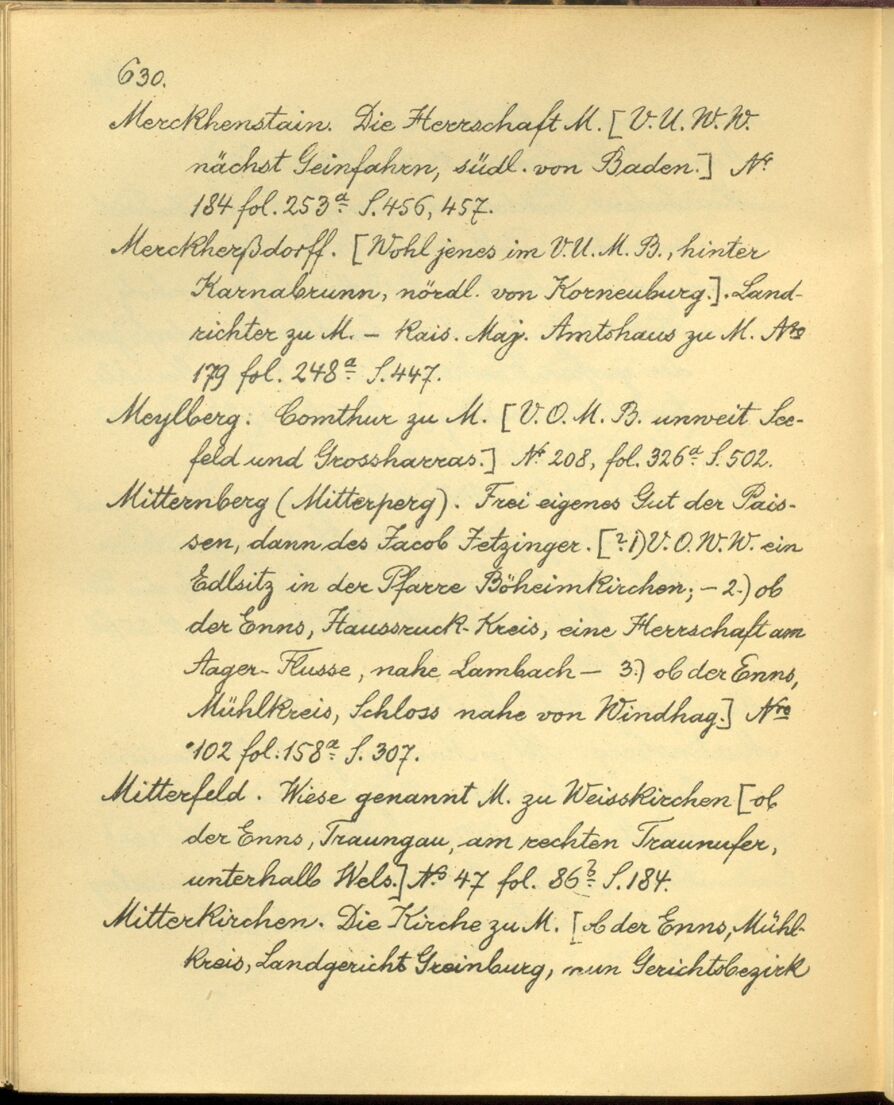 630.
Merckhenstain. Die Herrschaft M. [V.U.W.W.
nächst Geinfahrn, südl. von Baden.] Nr.
184 fol. 253a. S. 456, 457.
Merckherßdorff. [Wohl jenes im V.U.M.B., hinter
Karnabrunn, nördl. von Korneuburg.]. Land-
richter zu M. – Kais. Maj. Amtshaus zu M. Nro
179 fol. 248a. S. 447.
Meylberg. Comthur zu M. [V.O.M.B. unweit See-
feld und Grossharras.] Nr. 208, fol. 326a. S. 502.
Mitternberg (Mitterperg). Frei eigenes Gut der Pais-
sen, dann des Jacob Fetzinger. [?1) V.O.W.W. ein
Edlsitz in der Pfarre Böheimkirchen; – 2.) ob
der Enns, Haussruck-Kreis, eine Herrschaft am
Aager-Flusse, nahe Lambach – 3.) ob der Enns,
Mühlkreis, Schloss nahe von Windhag.] Nro
102 fol. 158a. S. 307.
Mitterfeld. Wiese genannt M. zu Weisskirchen [ob
der Enns, Traungau, am rechten Traunufer,
unterhalb Wels.] No. 47 fol. 86b. S. 184.
Mitterkirchen. Die Kirche zu M. [ob der Enns, Mühl-
kreis, Landgericht Greinburg, nun Gerichtsbezirk